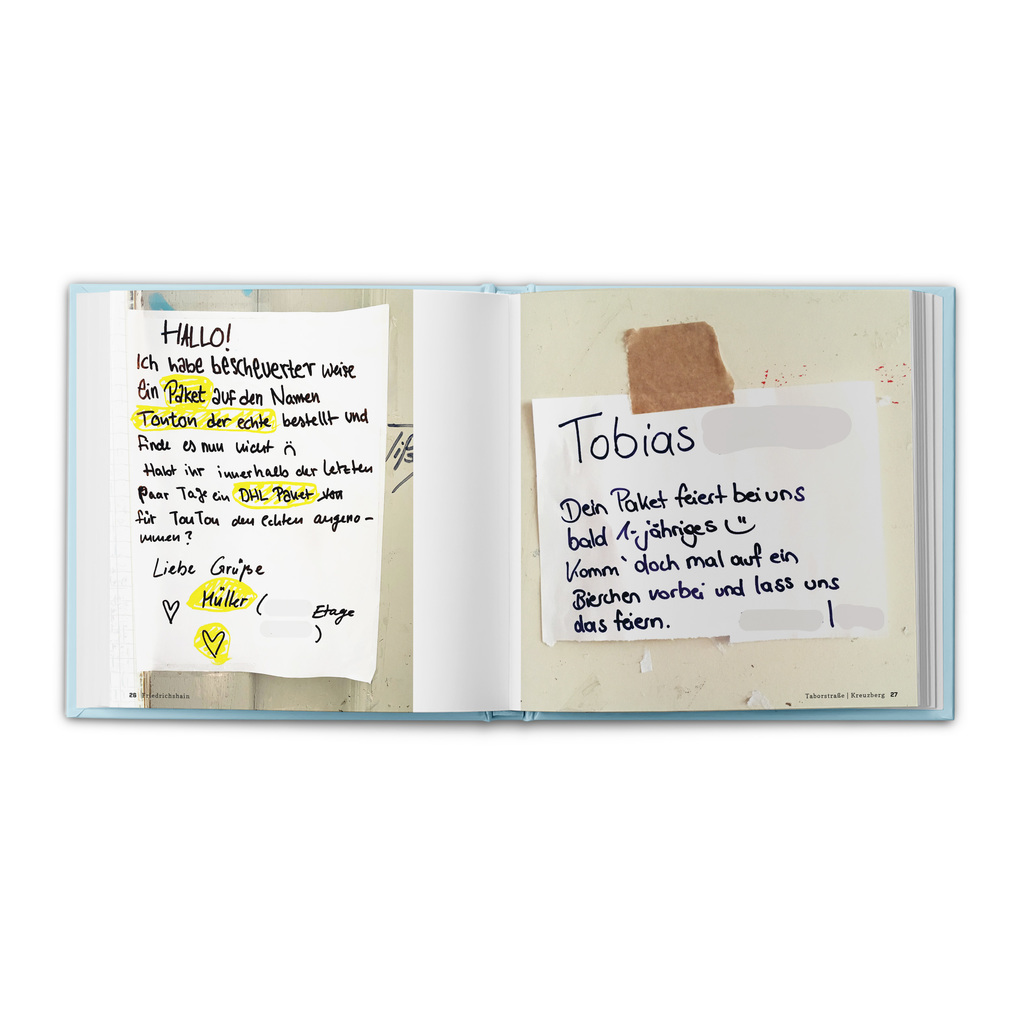 HALLO!
Ich habe bescheuerter weise
ein Paket auf den Namen
Tonton der echte bestellt und
finde es nun nicht
Habt ihr innerhalb der letzten
paar Tage ein DHL Paket von
für TonTon den echten angeno-
mmen?
Liebe Grüße
Müller (
Etage
)
26 Friedrichshain
Tobias
Dein Paket feiert bei uns
bald 1-jähriges
Komm' doch mal auf ein
Bierchen vorbei und lass uns
das feiern.
Taborstraße | Kreuzberg 27